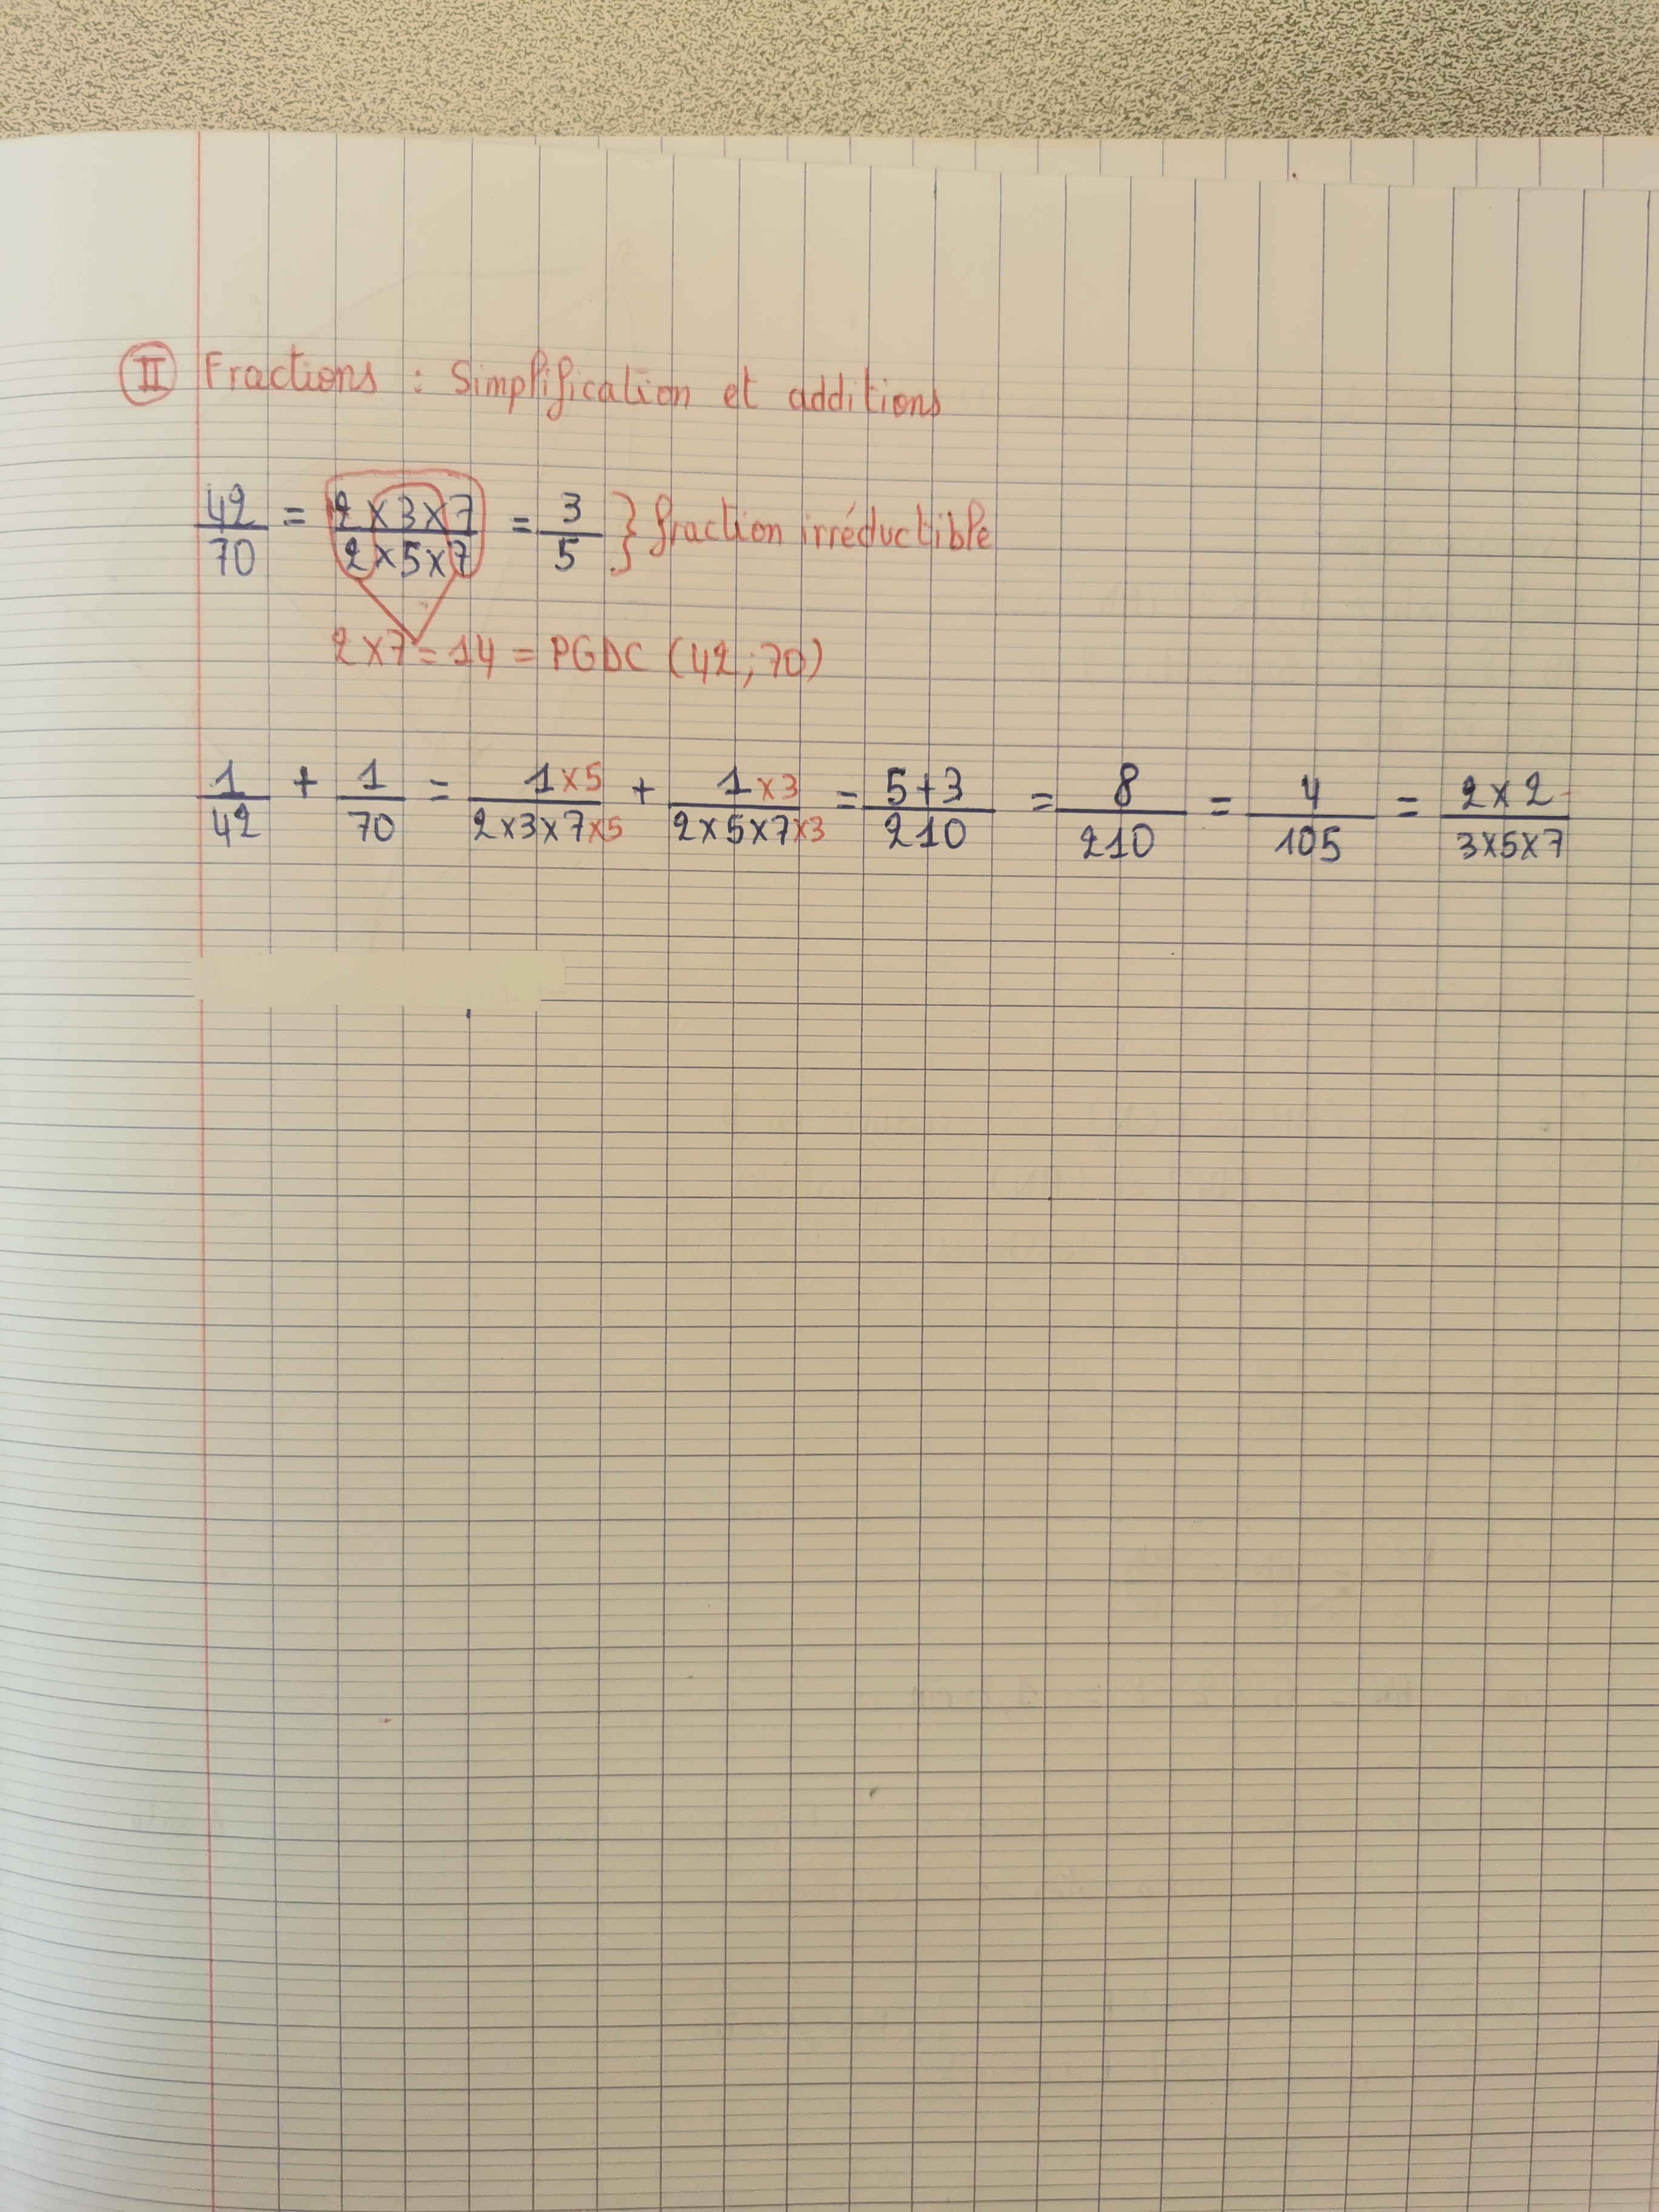 II Fractions : Simplification et additions
42/70 = 2×3×7/2×5×7 = 3/5 } fraction irréductible
2×7=14 = PGDC (42;70)
1/42 + 1/70 = 1×5/2×3×7×5 + 1×3/2×5×7×3 = 5+3/210 = 8/210 = 4/105 = 2×2/3×5×7